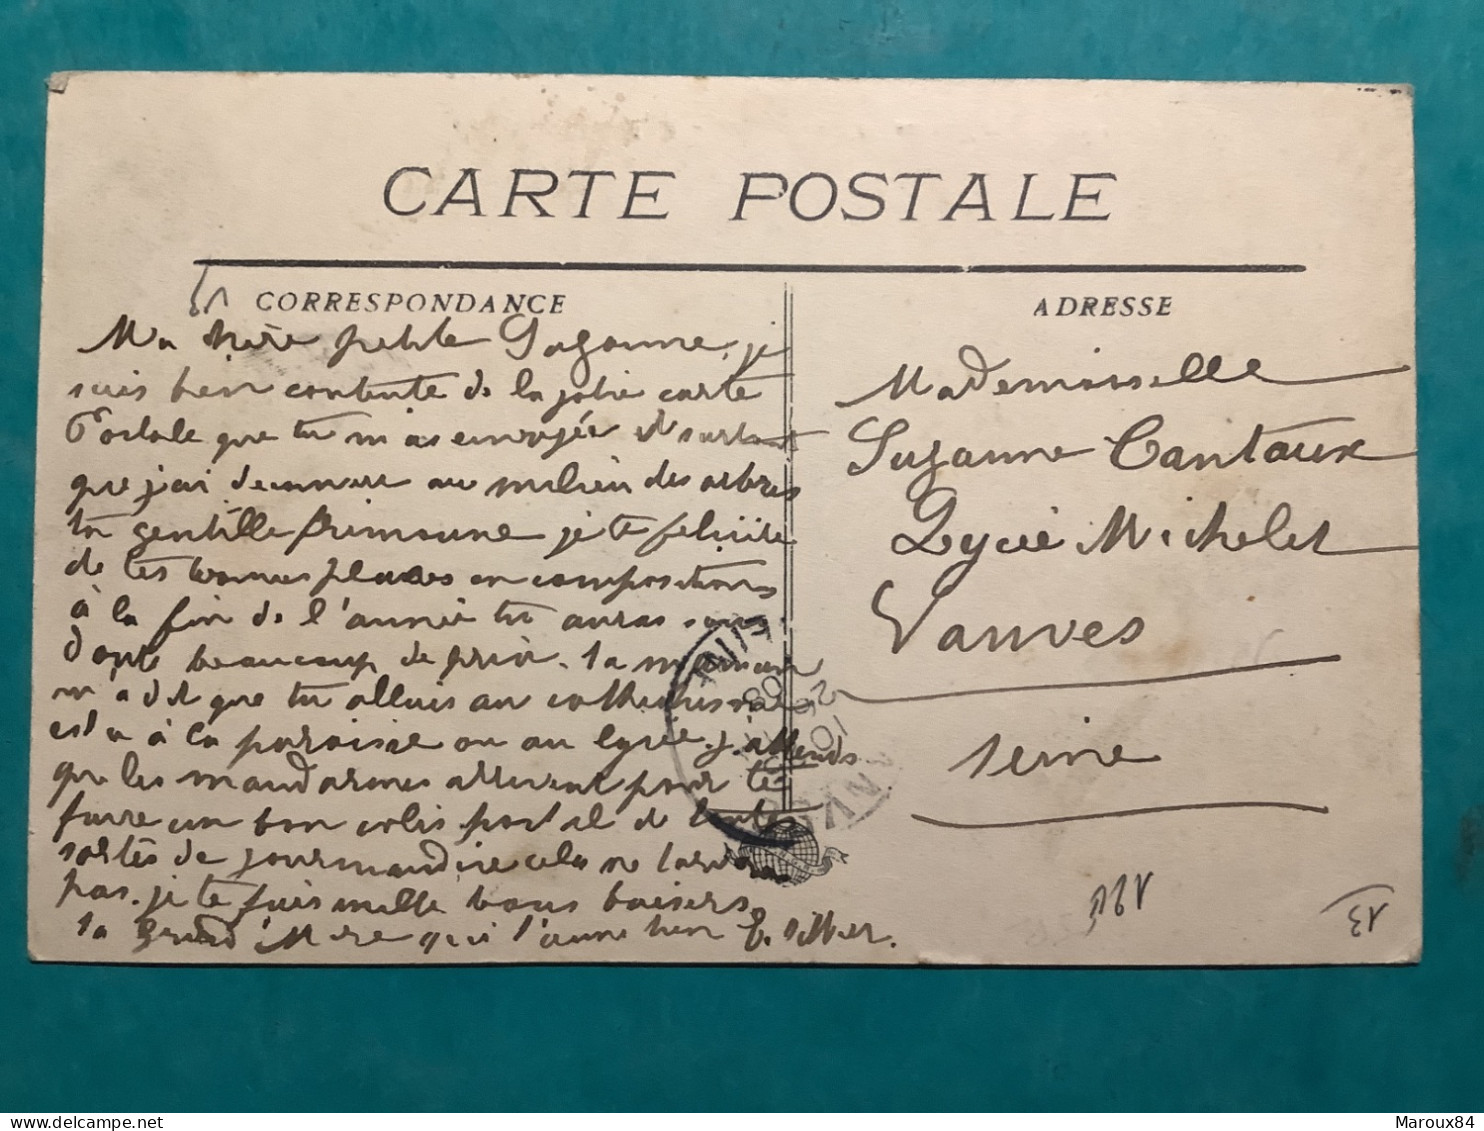 CARTE POSTALE
CORRESPONDANCE
Ma chère petite Suzanne, je
suis bien contente de la jolie carte
Postale que tu m'as envoyée et surtout
que j'ai au milieu des arbres
ta gentille frimoune je te felicite
de tes bonnes places en compositions
à la fin de l'année tu auras sans
doute beaucoup de prix. ta maman
m'a dit que tu allais au cathechisme
est ce à la paroisse ou au lycée. j'attends
que les mandarines arrivent pour te
faire un bon colis postal de toutes
sortes de gourmandise cela ne tardera
pas. je te fais mille bons baisers
ta Grand'Mère qui t'aime bien
ADRESSE
Mademoiselle
Suzanne Cantaux
Lycée Michelet
Vanves
Seine
VANVES
10
25
08
13
Maroux84